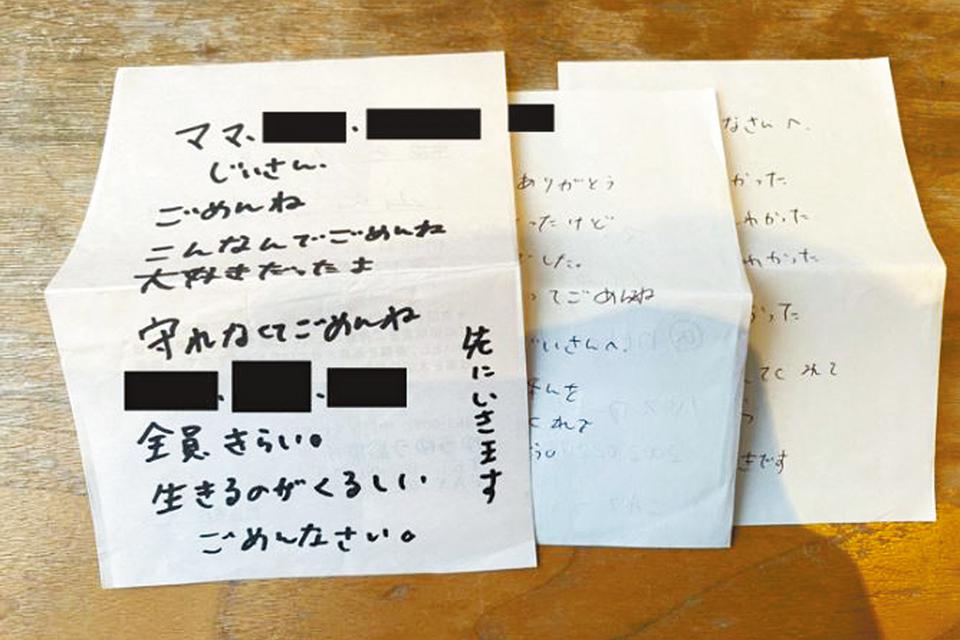 ママ、 ・
じいさん.
ごめんね
こんなんでごめんね
大好きだったよ
守れなくてごめんね
、 、
全員きらい。
生きるのがくるしい
ごめんなさい。
先にいきます
ありがとう
ったけど
でした。
ってごめんね
じいさんへ、
くれて
なさんへ、
かった
わかった
わかった
かった
てくれて
きです